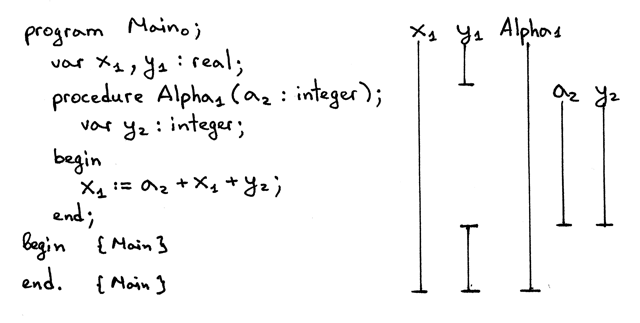 program Main₀;
var x₁, y₁ : real;
procedure Alpha₁ (a₂ : integer);
var y₂ : integer;
begin
x₁ := a₂ + x₁ + y₂;
end;
Begin {Main}
end. {Main}
x₁ y₁ Alpha₁
a₂ y₂